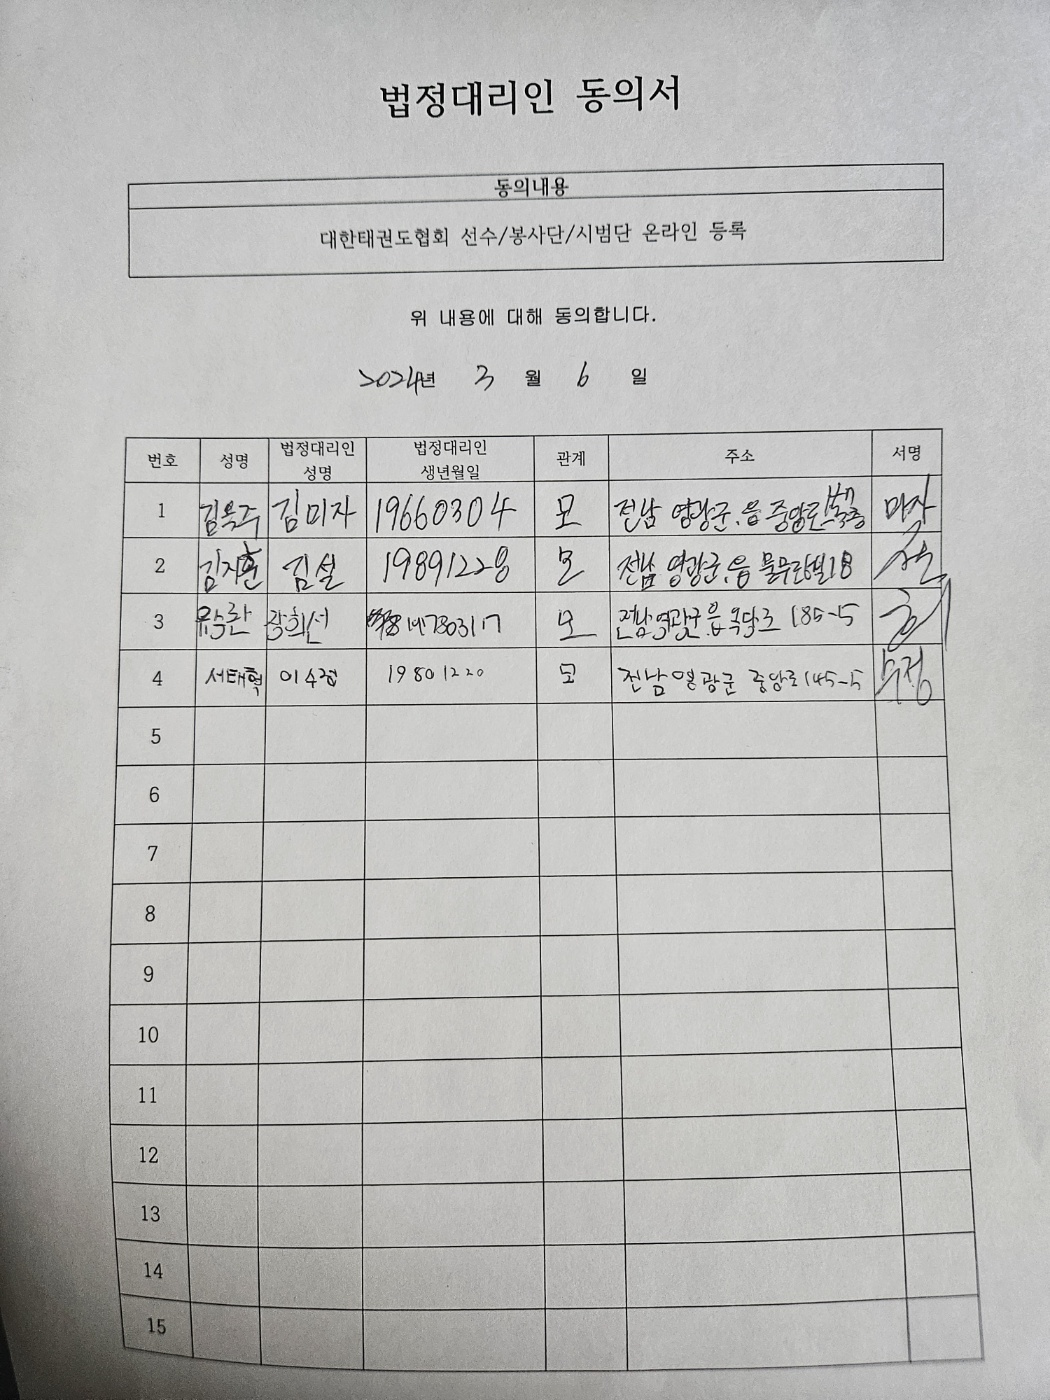 법정대리인 동의서
동의내용
대한태권도협회 선수/봉사단/시범단 온라인 등록
위 내용에 대해 동의합니다.
2024년 3 월 6 일
번호 성명 법정대리인 성명 법정대리인 생년월일 관계 주소 서명
1 김옥주 김미자 19660304 모 전남 영광군.읍 미자
2 김지훈 김설 19891228 모 전남 영광군.읍 물무로
3 유수란 곽희선 19780317 모 전남 영광군.읍 185-5
4 서태혁 이수정 19801220 모 전남 영광군 중앙로 145-5 수정
5
6
7
8
9
10
11
12
13
14
15